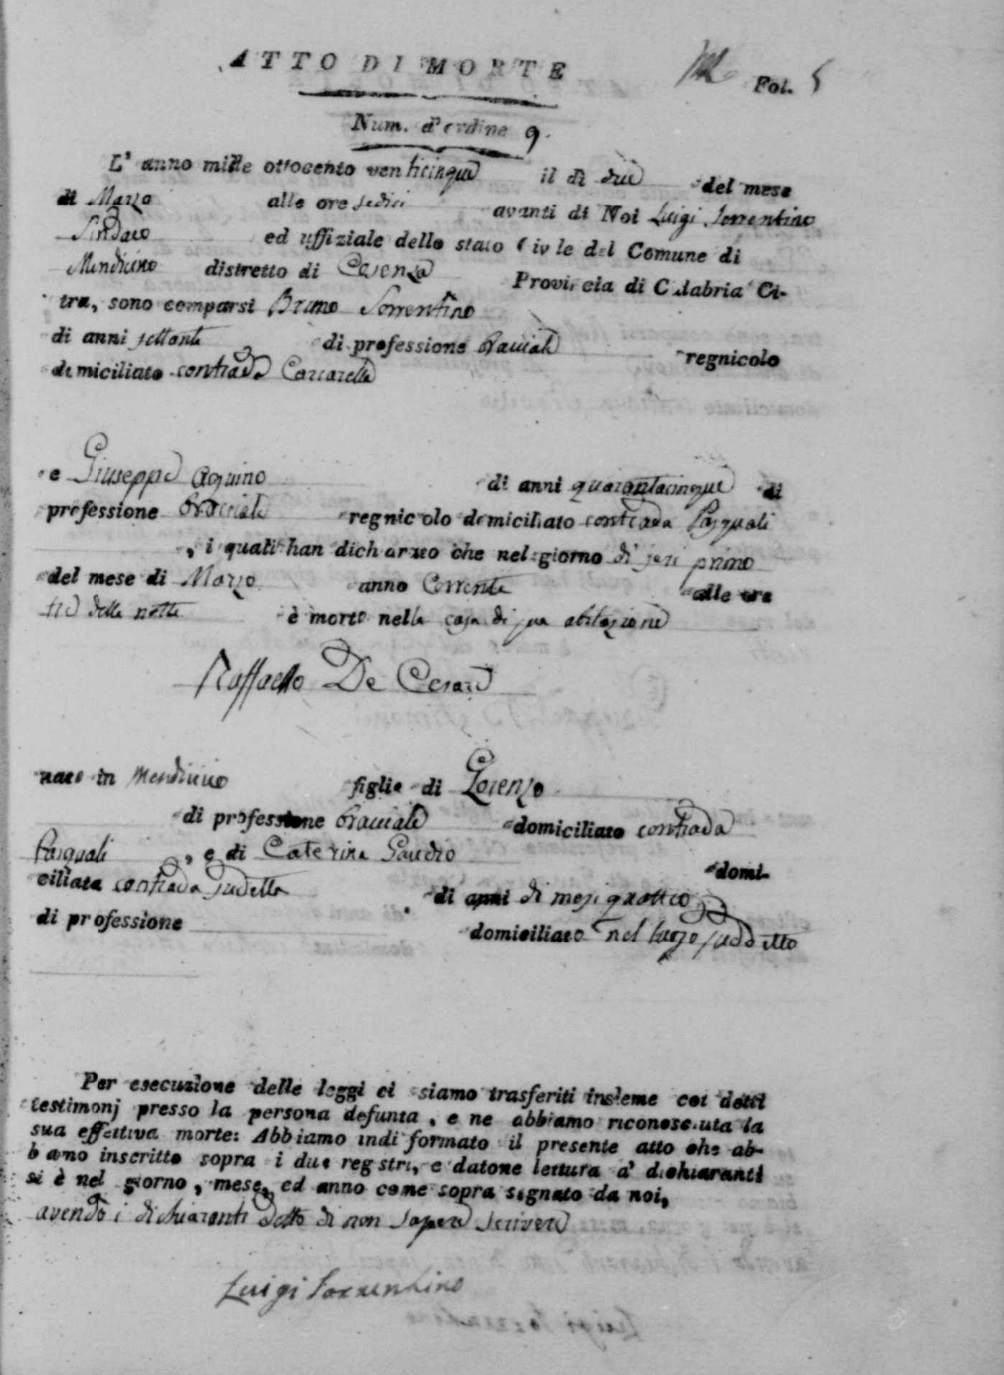 ATTO DI MORTE
Fol. 5
Num. d'ordine 9.
L'anno mille ottocento venticinque il dì due del mese
di Marzo alle ore sedici avanti di Noi Luigi Sorrentino
Sindaco ed uffiziale dello stato Civile del Comune di
Mendicino distretto di Cosenza Provincia di Calabria Ci-
tra, sono comparsi Bruno Sorrentino
di anni settanta di professione Bracciale regnicolo
domiciliato contrada Carcarella
e Giuseppe Aquino di anni quarantacinque di
professione Bracciale regnicolo domiciliato contrada Pasquali
, i quali han dichiarato che nel giorno di jeri primo
del mese di Marzo anno Corrente alle ore
tre della notte è morto nella casa di sua abitazione
Raffaello De Cesare
nato in Mendicino figlio di Lorenzo
di professione Bracciale domiciliato contrada
Pasquali , e di Caterina Gaudio domi-
ciliata contrada sudetta di anni di mesi quattro
di professione domiciliato nel luogo suddetto
Per esecuzione delle leggi ci siamo trasferiti insieme coi detti
testimonj presso la persona defunta, e ne abbiamo riconosciuta la
sua effettiva morte: Abbiamo indi formato il presente atto che ab-
biamo inscritto sopra i due registri, e datone lettura a' dichiaranti
si è nel giorno, mese, ed anno come sopra segnato da noi,
avendo i dichiaranti detto di non sapere scrivere
Luigi Sorrentino